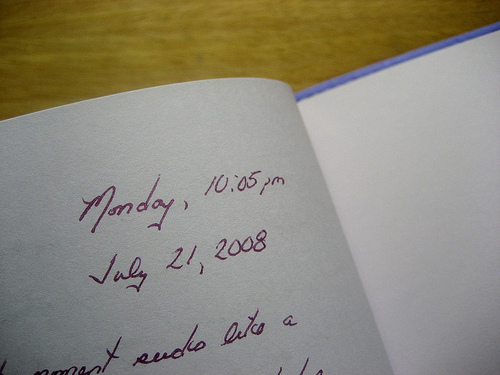 Monday, 10:05 pm
July 21, 2008
moment sucks like a